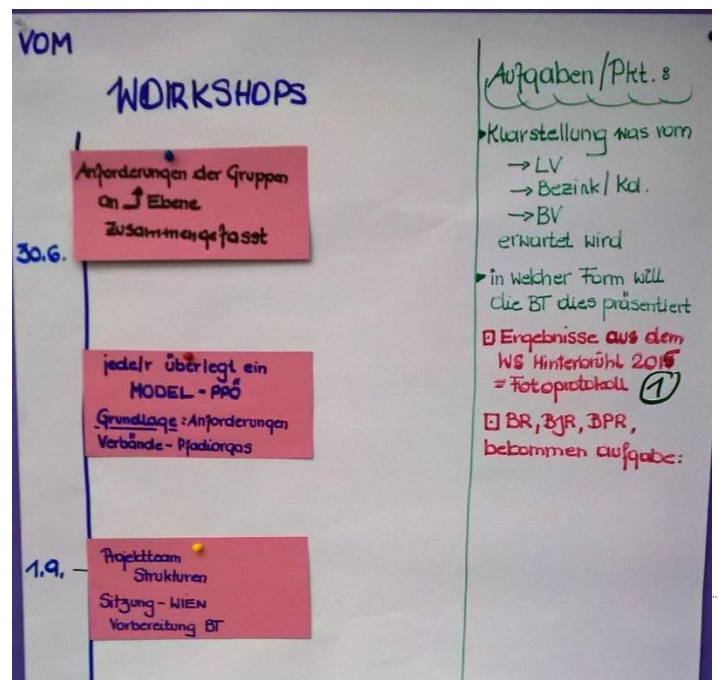 VOM
WORKSHOPS
Anforderungen der Gruppen
an ↑ Ebene
zusammengefasst
30.6.
jede/r überlegt ein
MODEL - PPÖ
Grundlage: Anforderungen
Verbände - Pfadiorgas
1.9.
Projektteam
Strukturen
Sitzung - WIEN
Vorbereitung BT
Aufgaben/Pkt. 8
Klarstellung was vom
→ LV
→ Bezirk/Kol.
→ BV
erwartet wird
in welcher Form will
die BT dies präsentiert
Ergebnisse aus dem
WS Hinterbrühl 2015
= Fotoprotokoll 1
BR, BJR, BPR,
bekommen aufgabe: